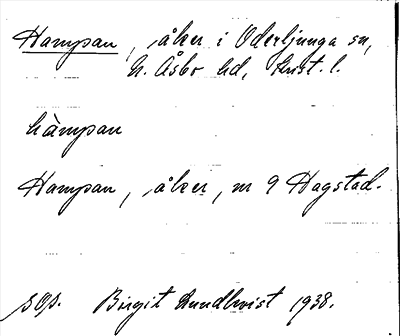 Hampan, åker i Oderljunga sn,
N. Åsbo hd, Krist. l.
hàmpan
Hampan, åker, nr 9 Hagstad.
sOp. Birgit Lundkvist 1938.